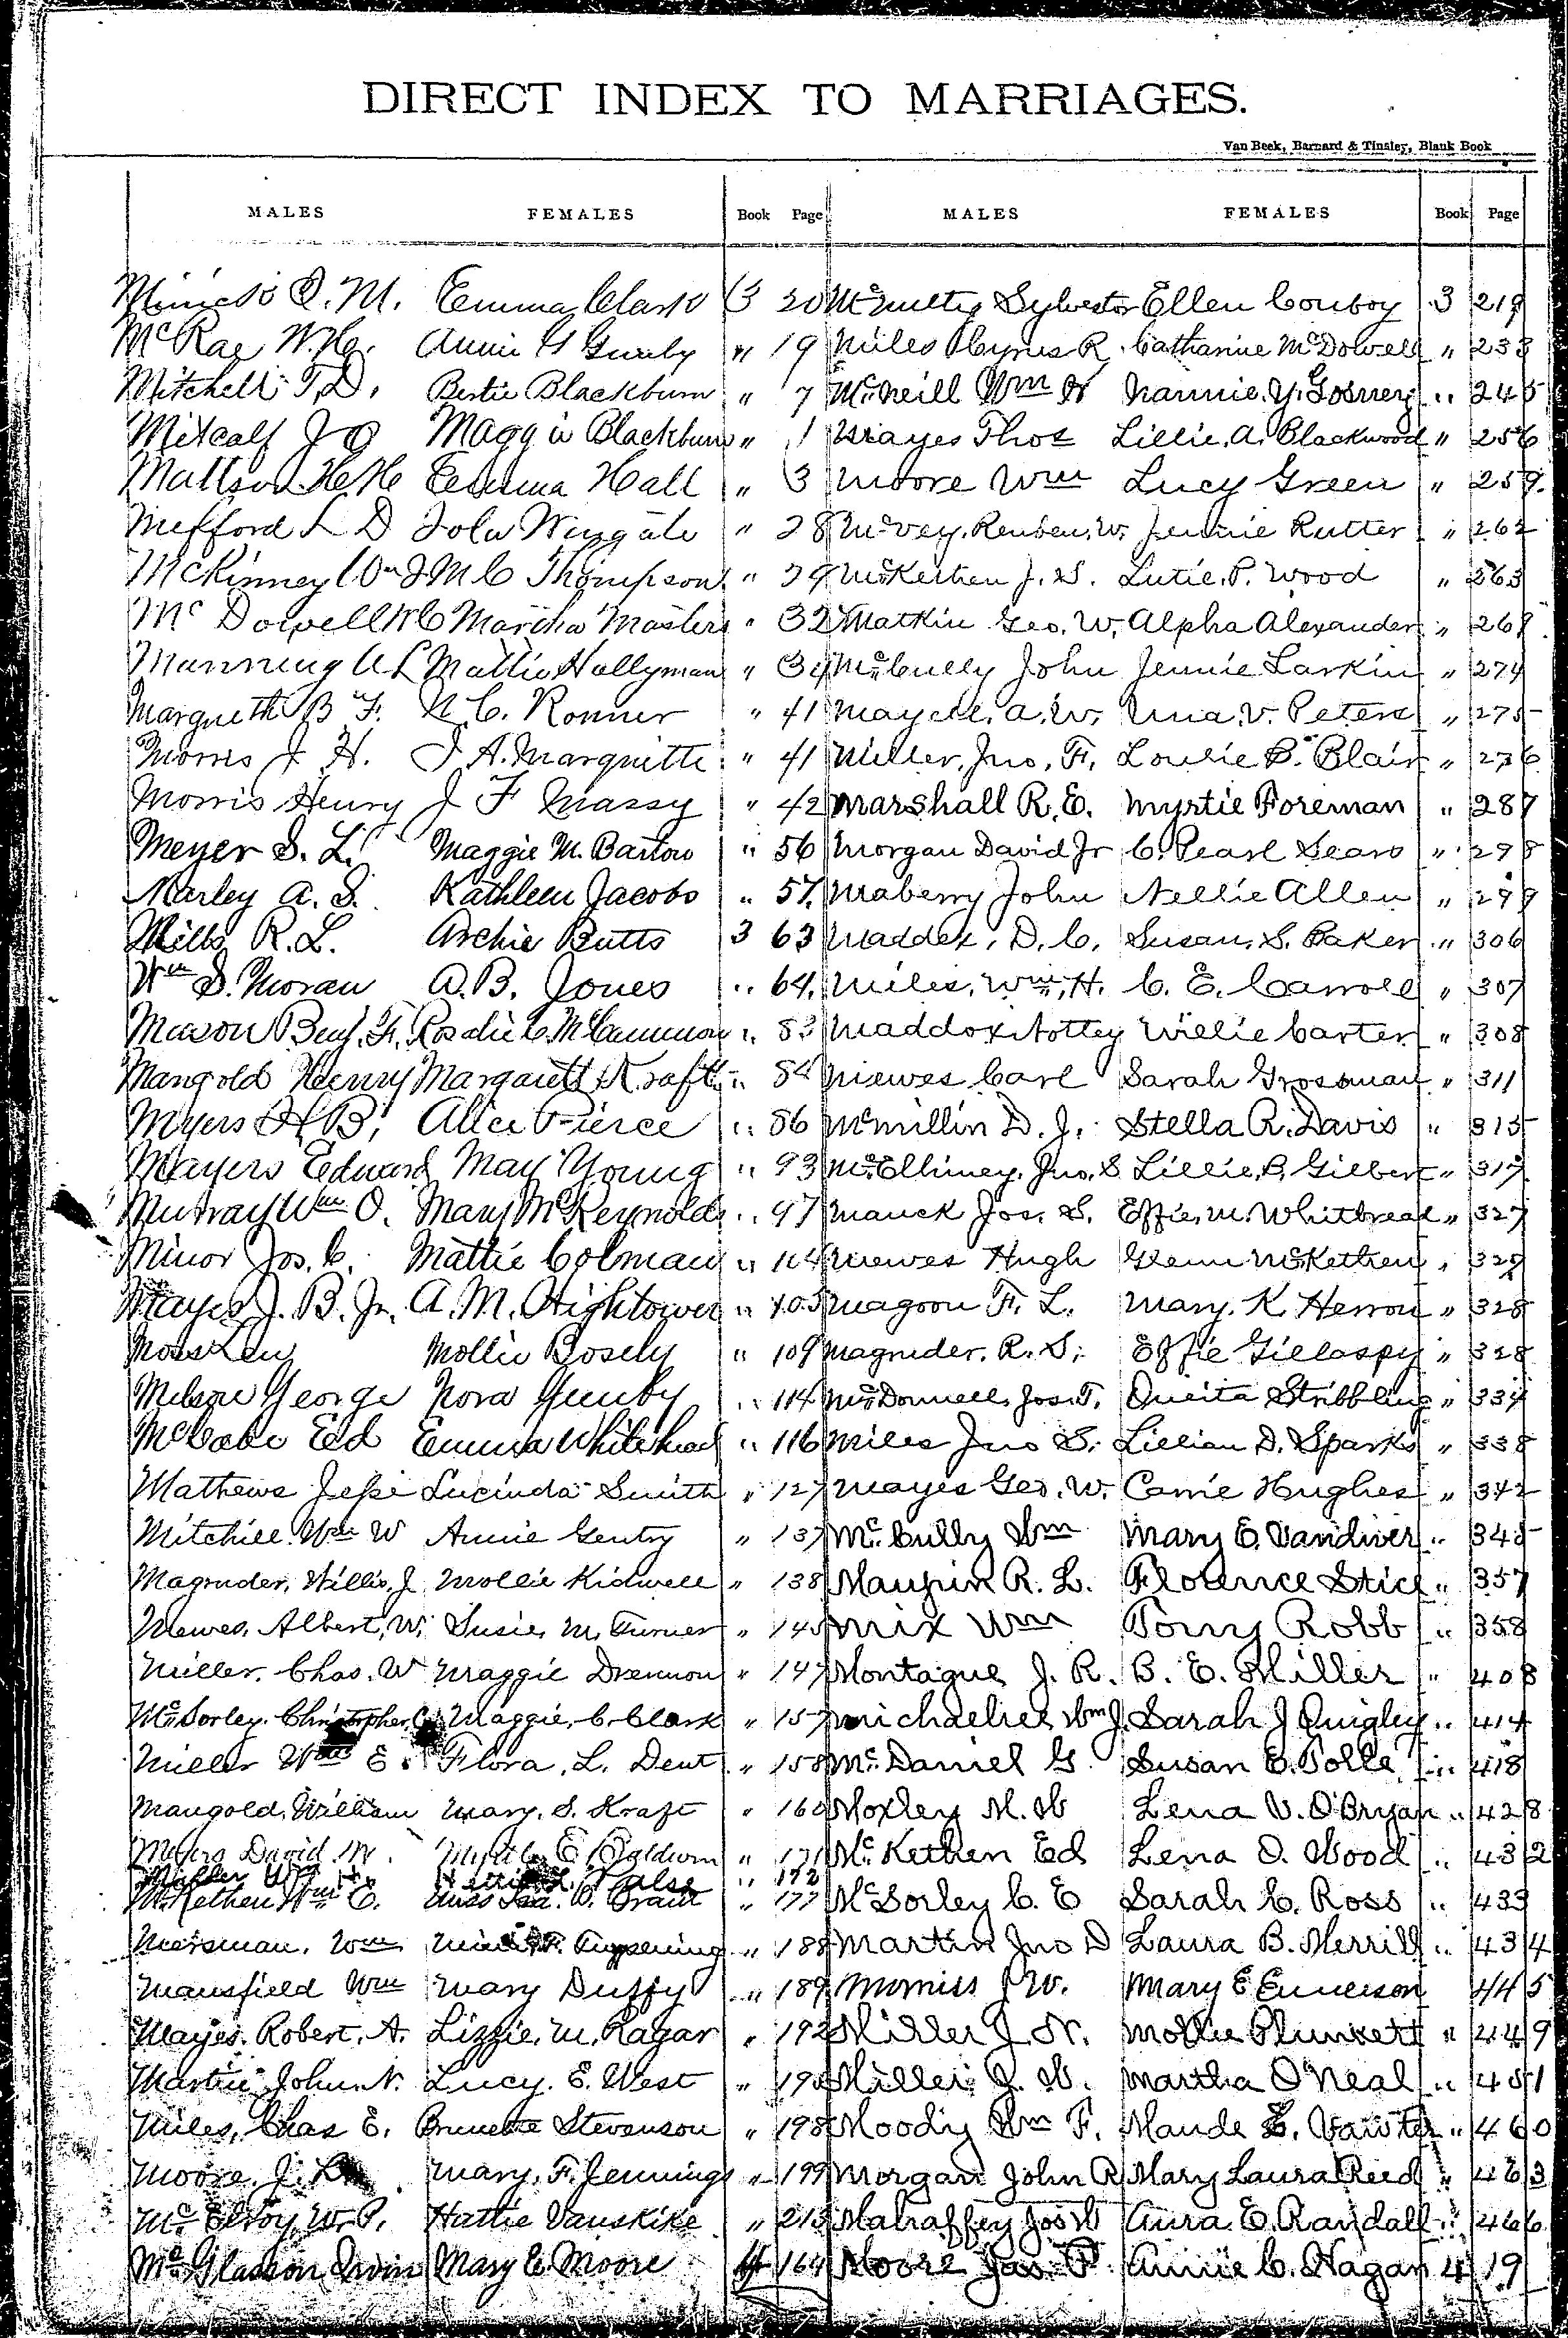 DIRECT INDEX TO MARRIAGES.
Van Beek, Barnard & Tinsley, Blank Book
MALES FEMALES Book Page MALES FEMALES Book Page
O. M. Emma Clark 3 20
McRae W. H. Annie G Gunby " 19
Mitchell T. D. Bertie Blackburn " 7
Metcalf J O Maggie Blackburn " 1
Mattson H H Emma Hall " 3
Mefford L D Iola Wingate " 28
McKinney Wm J M C Thompson " 29
Mc Dowell W C Martha Masters " 32
Manning A L Mattie Hollyman " 34
Margueth B F. N. C. Ronner " 41
Morris J H. J A. Marquitte " 41
Morris Henry J F Massy " 42
Meyer S. L. Maggie M. Bartow " 56
Marley A. S. Kathleen Jacobs " 57
Mills R. L. Archie Butts 3 63
Wm S. Moran A. B. Jones " 64
Mason Benj. F. Rosalie C. McCammon " 83
Mangold Henry Margarett Kraft " 84
Myers H B, Alice Pierce " 86
Mayers Edward May Young " 93
Murray Wm O. Mary McReynolds " 97
Minor Jos. C. Mattie Colman " 104
Mayes J. B. Jr. A. M. Hightower " 105
Moss Len Mollie Bosely " 109
Melson George Nora Gunby " 114
McCabe Ed Emma Whitehead " 116
Mathews Jesse Lucinda Smith " 127
Mitchill Wm W Annie Gentry " 137
Magruder, Willis. J Mollie Kidwell " 138
Mewes, Albert, W. Susie, M, Turner " 145
Miller, Chas. W Maggie Drennon " 147
McSorley. Christopher, C. Maggie, C. Clark " 157
Miller Wm E. Flora, L. Dent " 158
Mangold, William Mary, S. Kraft " 160
Myers David. M. E Baldwin " 171
Miller Wm H. " 172
McKethen Wm E. Miss O. Grant " 177
Mersman, Wm " 188
Mansfield Wm Mary Duffy " 189
Mayes, Robert, A. Lizzie, M, Ragar " 192
Martin John N. Lucy. E. West "
Miles, Chas E. Brunette Stevenson " 198
Moore, J. L. Mary, F. Jennings " 199
Mc Elroy, W. P. Hattie Vanskike "
McGlasson Irvin Mary E. Moore 4 164
McNulty Sylvester Ellen Conboy 3 219
Miles Cyrus R. Catharine McDowell " 233
McNeill Wm N Nannie, Y. Gosney " 245
Mayes Thos Lillie, A. Blackwood " 256
Moore Wm Lucy Green " 259
McVey, Reuben, W. Jennie Rutter " 262
McKethen J. S. Lutie, P. Wood " 263
Matkin Geo. W. Alpha Alexander " 269
McCully John Jennie Larkin " 274
A. W. Una. V. Peters " 275
Miller, Jno, F. Loulie B. Blair " 276
Marshall R. E. Myrtie Foreman " 287
Morgan David Jr C. Pearl Sears " 298
Maberry John Nellie Allen " 299
Maddex, D. C. Susan, S. Baker " 306
Miles, Wm, H. C. E. Carroll " 307
Maddox Nottey Willie Carter " 308
Mewes Carl Sarah Grossman " 311
McMillin D. J. Stella R. Davis " 315
McElhiney, Jno, S Lillie, P. Gilbert " 317
Mauck Jos. S. Effie, M. Whitbread " 327
Mewes Hugh Glenn McKethen "
Magoon F. L. Mary. K Herron " 328
Magruder. R. S. Effie Gillaspy " 328
McDonnell, Jos. T. Oneita Stribbling " 334
Miles Jno S. Lillian D. Sparks " 338
Mayes Geo. W. Carrie Hughes " 342
Mc Cully Wm Mary E. Vandiver " 345
Maupin R. L. Florence Stice " 357
Mix Wm Tony Robb " 358
Montague J. R. B. E. Miller " 408
Wm J. Sarah J Quigley " 414
Mc Daniel G Susan E. Polle " 418
Moxley M. W Lena V. O'Bryan " 428
Mc Kethen Ed Lena O. Wood " 432
McSorley C. E Sarah C. Ross " 433
Martin Jno D Laura B. Merrill " 434
J W. Mary E Emerson 445
Miller J. N. Mollie Plunkett " 449
Miller J. W. Martha O'Neal " 451
Moody Wm F. Maude E. Vawter " 460
Morgan John R Mary Laura Reed " 463
Mahaffey Jos W Aura E. Randall " 466
Moore Jas. P. Annie C. Hagan 4 19